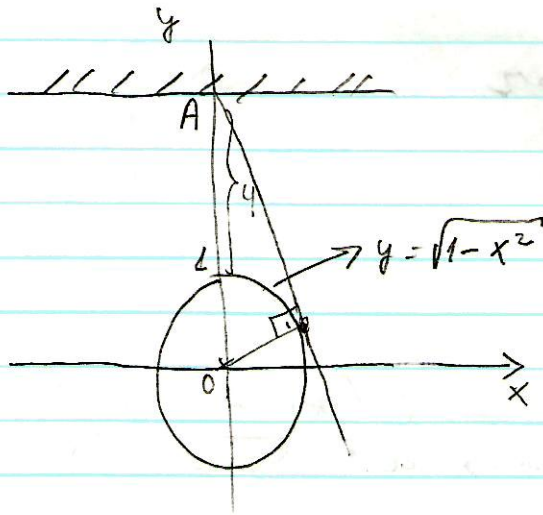 y
A
4
1
y = √(1 - x²)
0
x